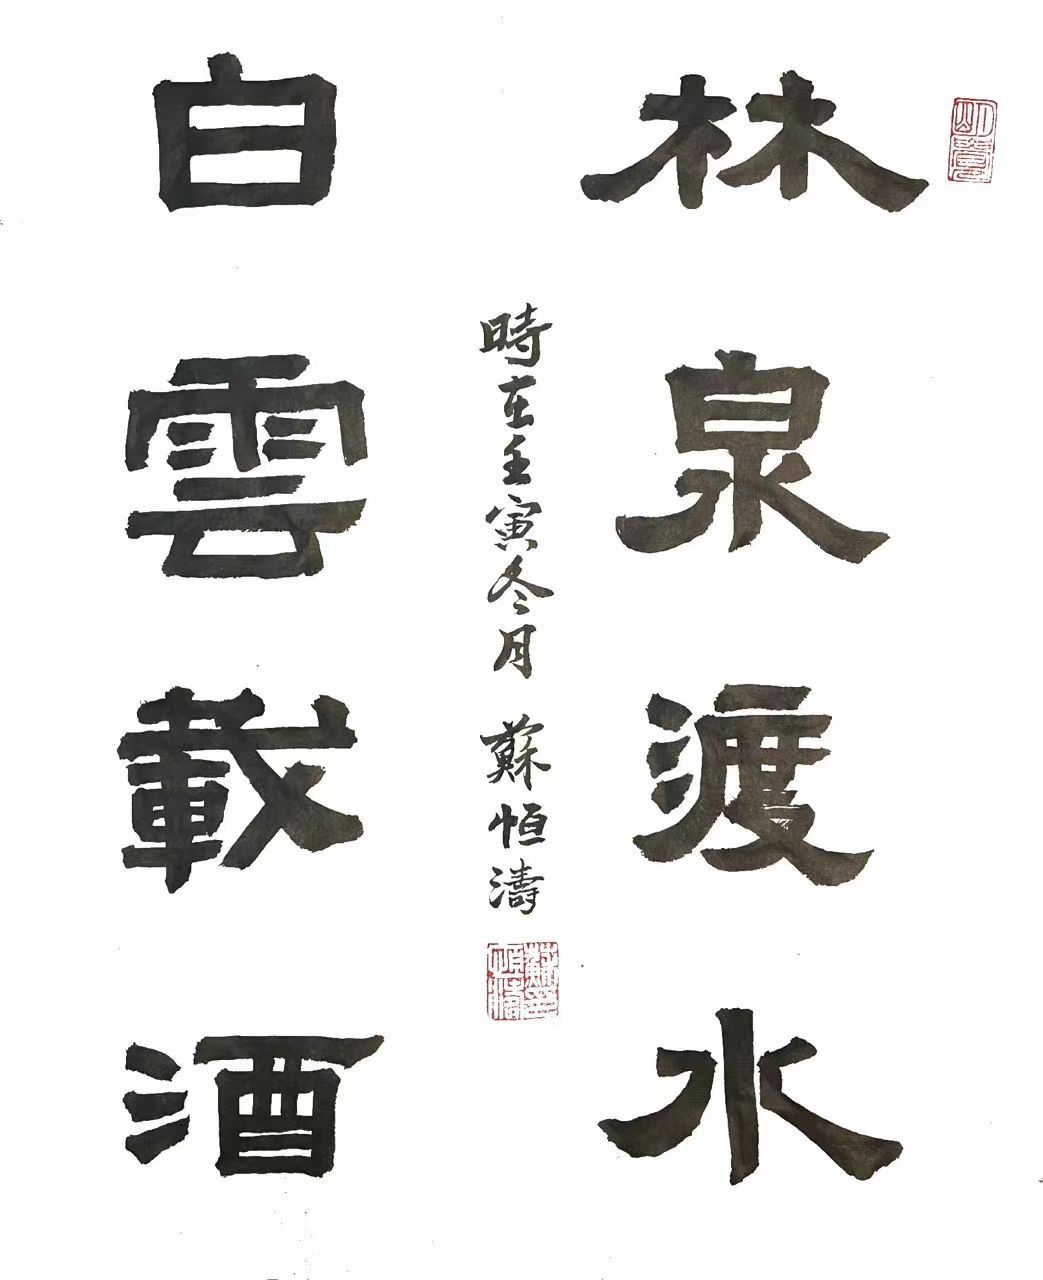 林泉渡水
白雲載酒
時在壬寅冬月 蘇恒濤
蘇恒濤印